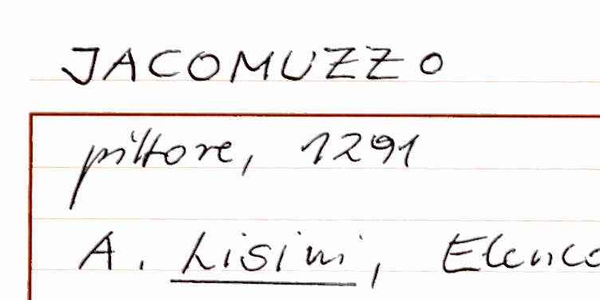 JACOMUZZO
pittore, 1291
A. Lisini, Elenco